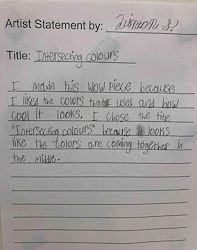 Artist Statement by:
Title: Intersecting colours
I made this wow piece because
I liked the colors that I used and how
cool it looks. I chose the title
"Intersecting colours" because it looks
like the colors are coming together in
the middle.